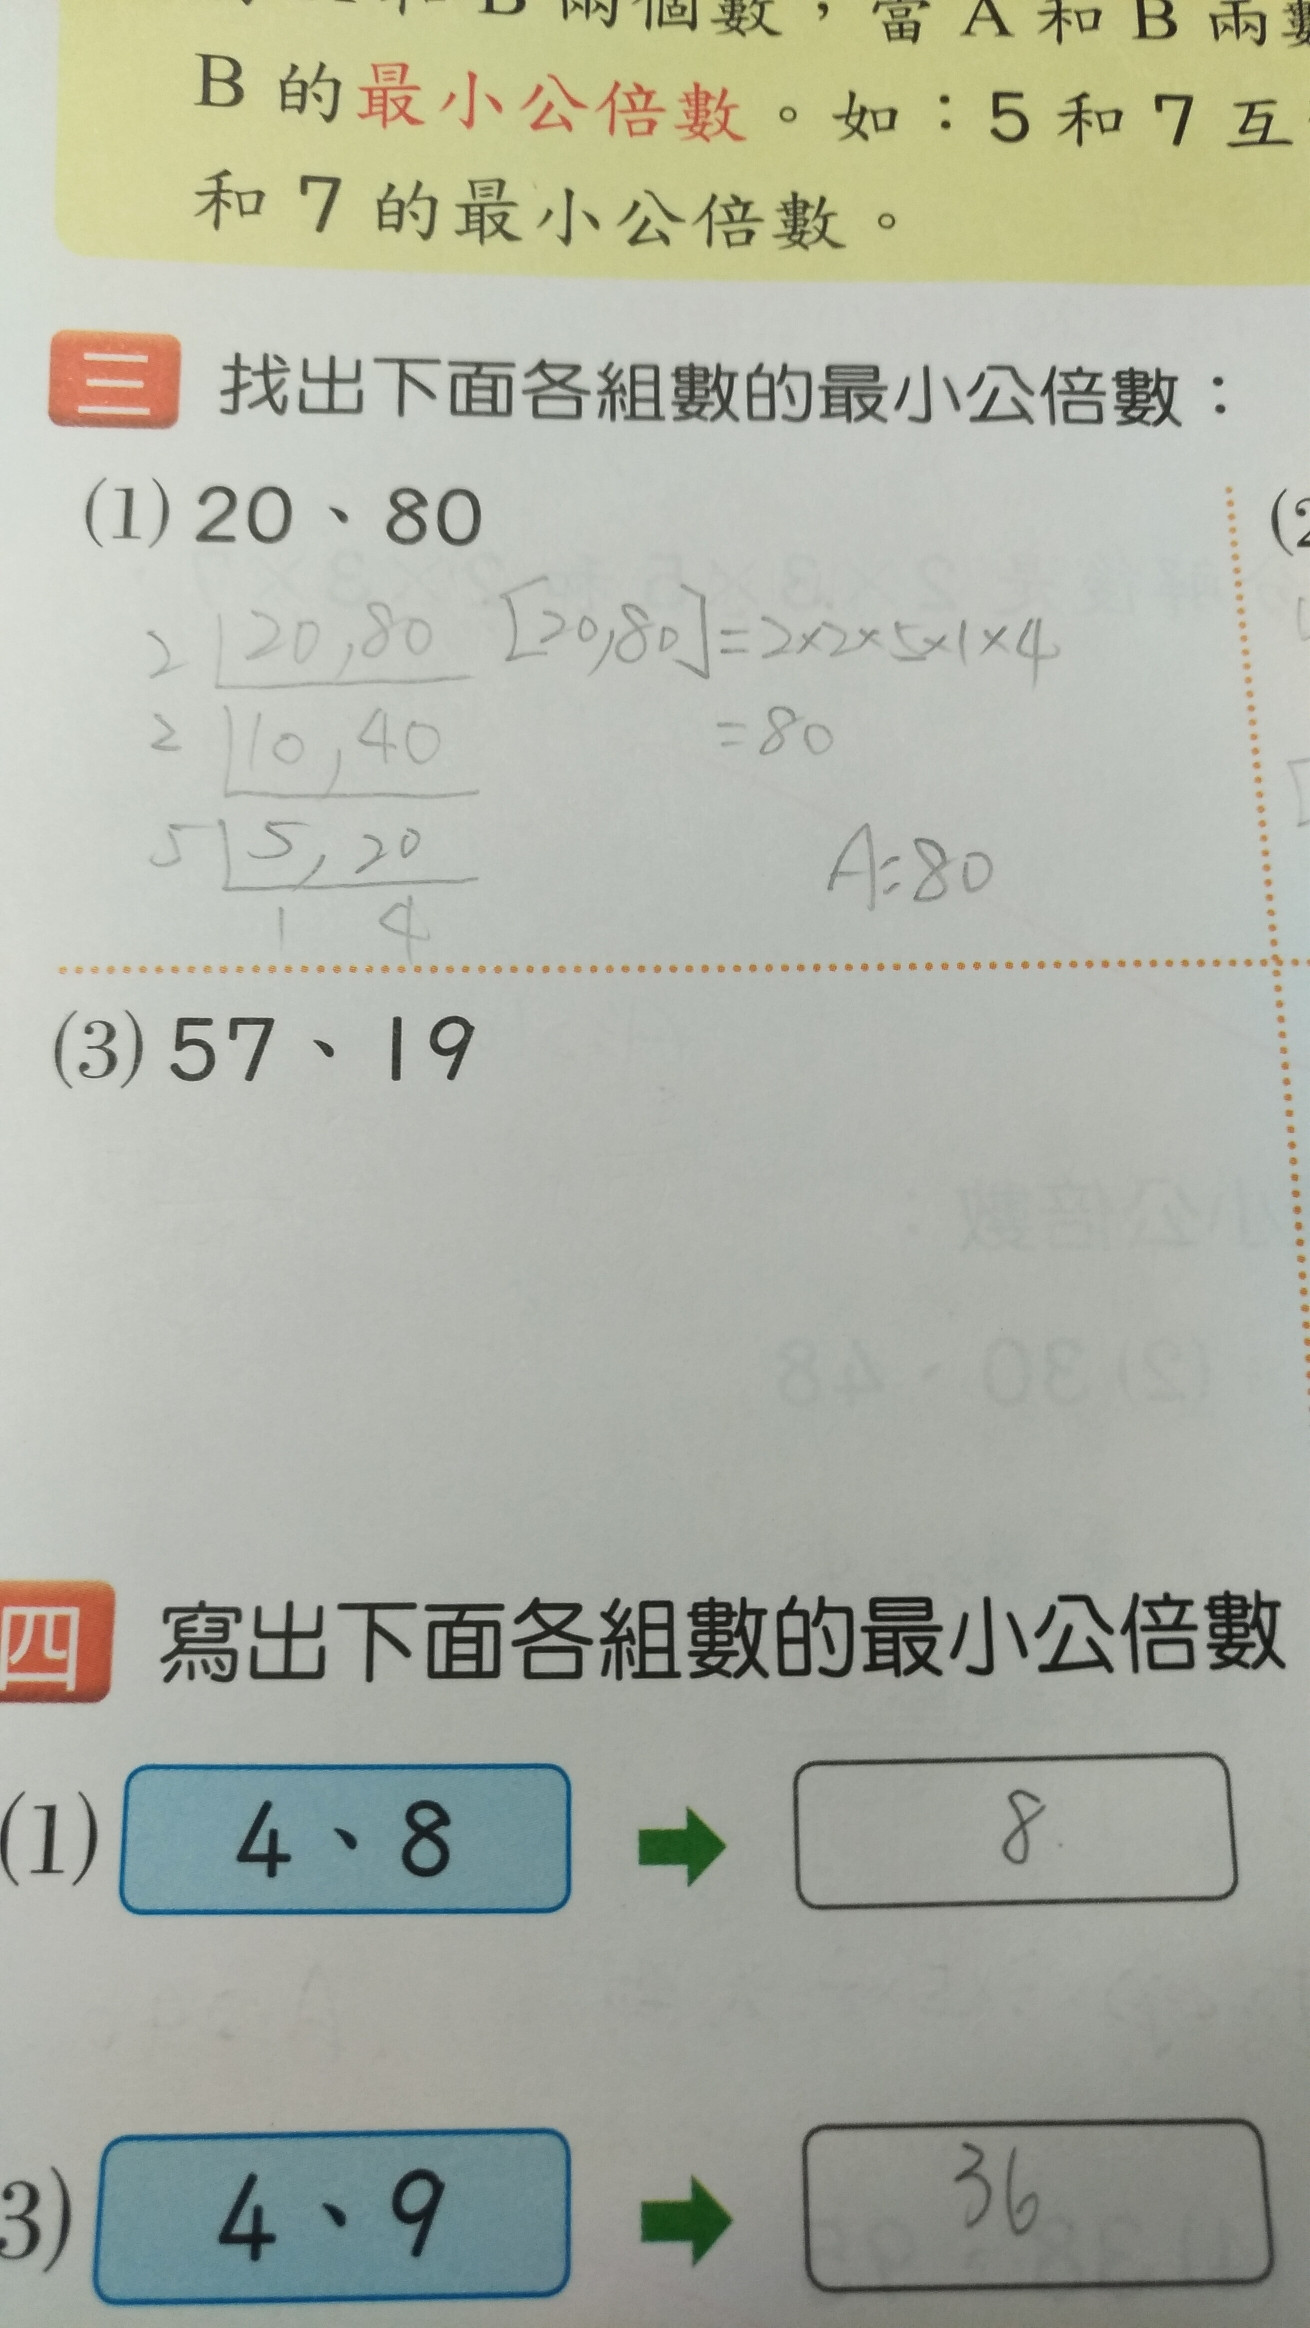 B 兩個數，當 A 和 B 兩
B 的最小公倍數。如：5 和 7 互
和 7 的最小公倍數。
三 找出下面各組數的最小公倍數：
(1) 20、80
2 20,80 [20,80]=2×2×5×1×4
2 10,40 =80
5 5,20 A:80
1 4
(3) 57、19
四 寫出下面各組數的最小公倍數
(1) 4、8 8
3) 4、9 36